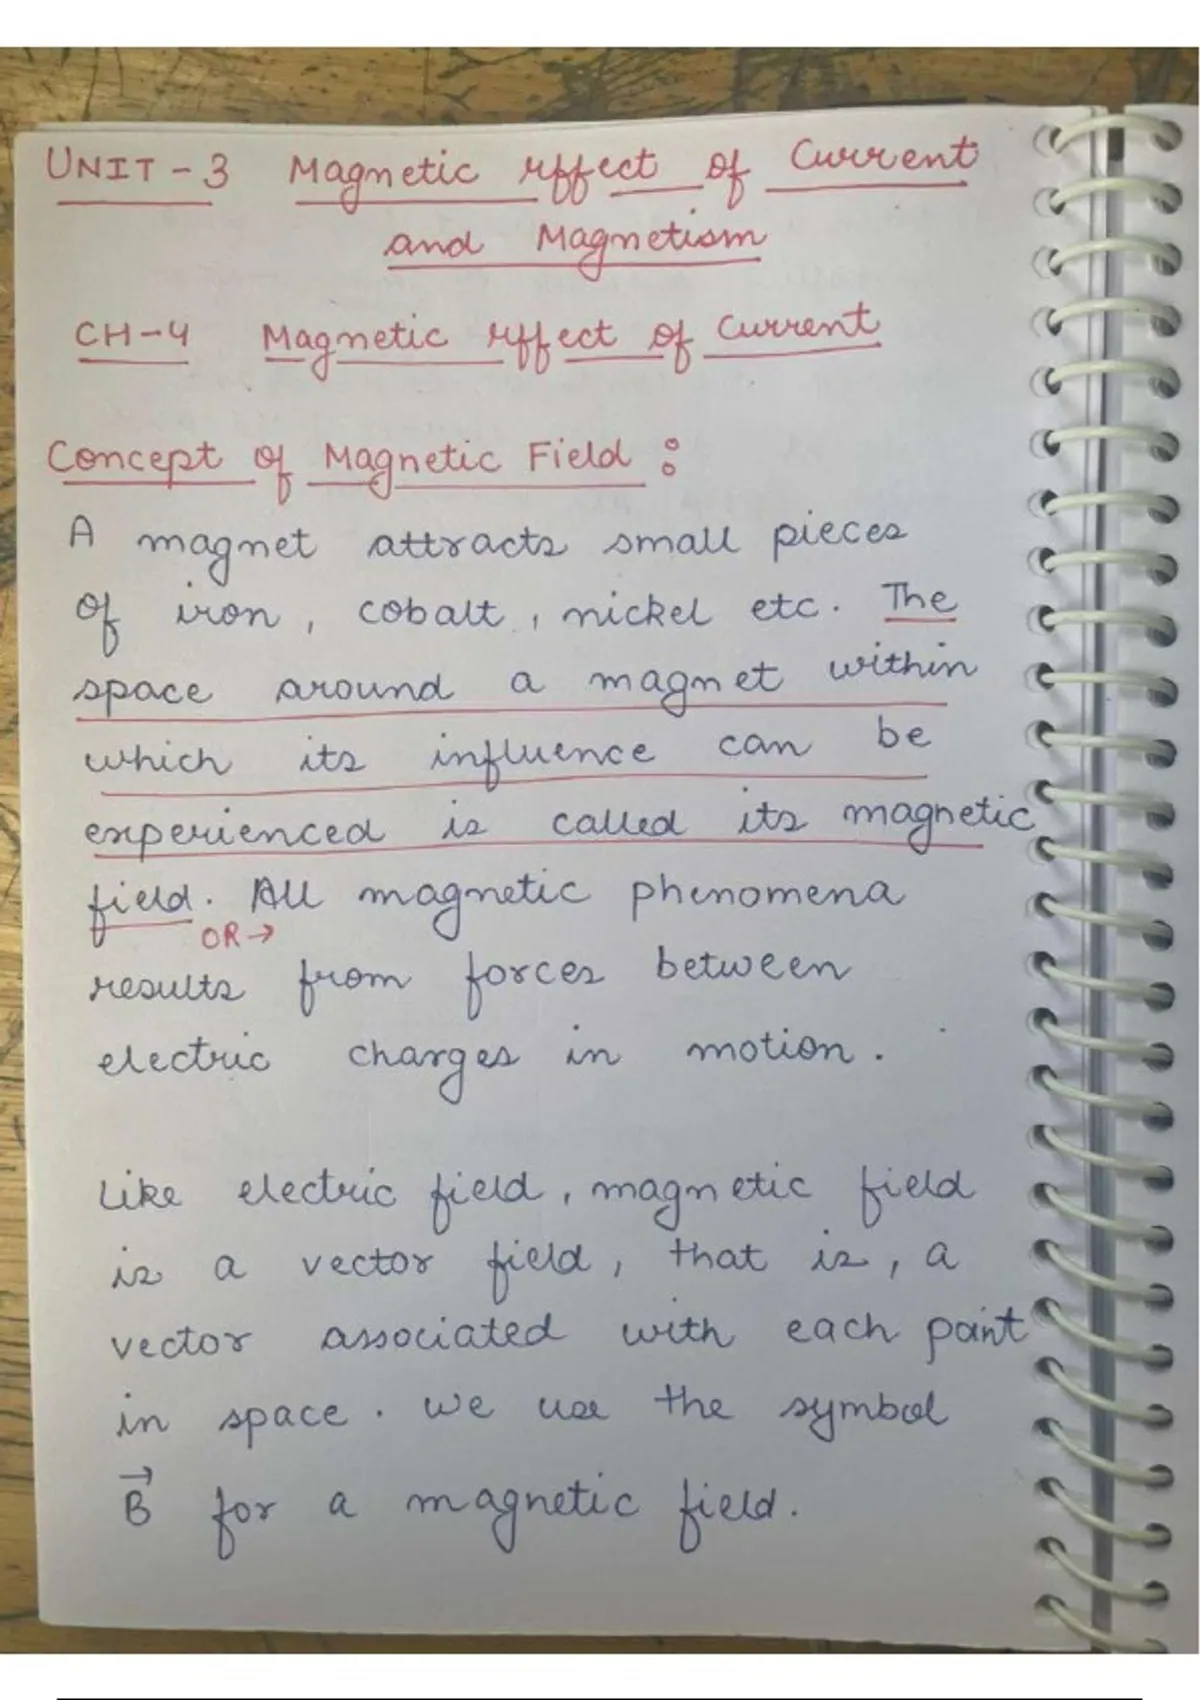 UNIT-3 Magnetic effect of Current
and Magnetism
CH-4 Magnetic effect of Current
Concept of Magnetic Field :
A magnet attracts small pieces
of iron, cobalt, nickel etc. The
space around a magnet within
which its influence can be
experienced is called its magnetic
field. All magnetic phenomena
OR →
results from forces between
electric charges in motion.
Like electric field, magnetic field
is a vector field, that is, a
vector associated with each point
in space. We use the symbol
B⃗ for a magnetic field.